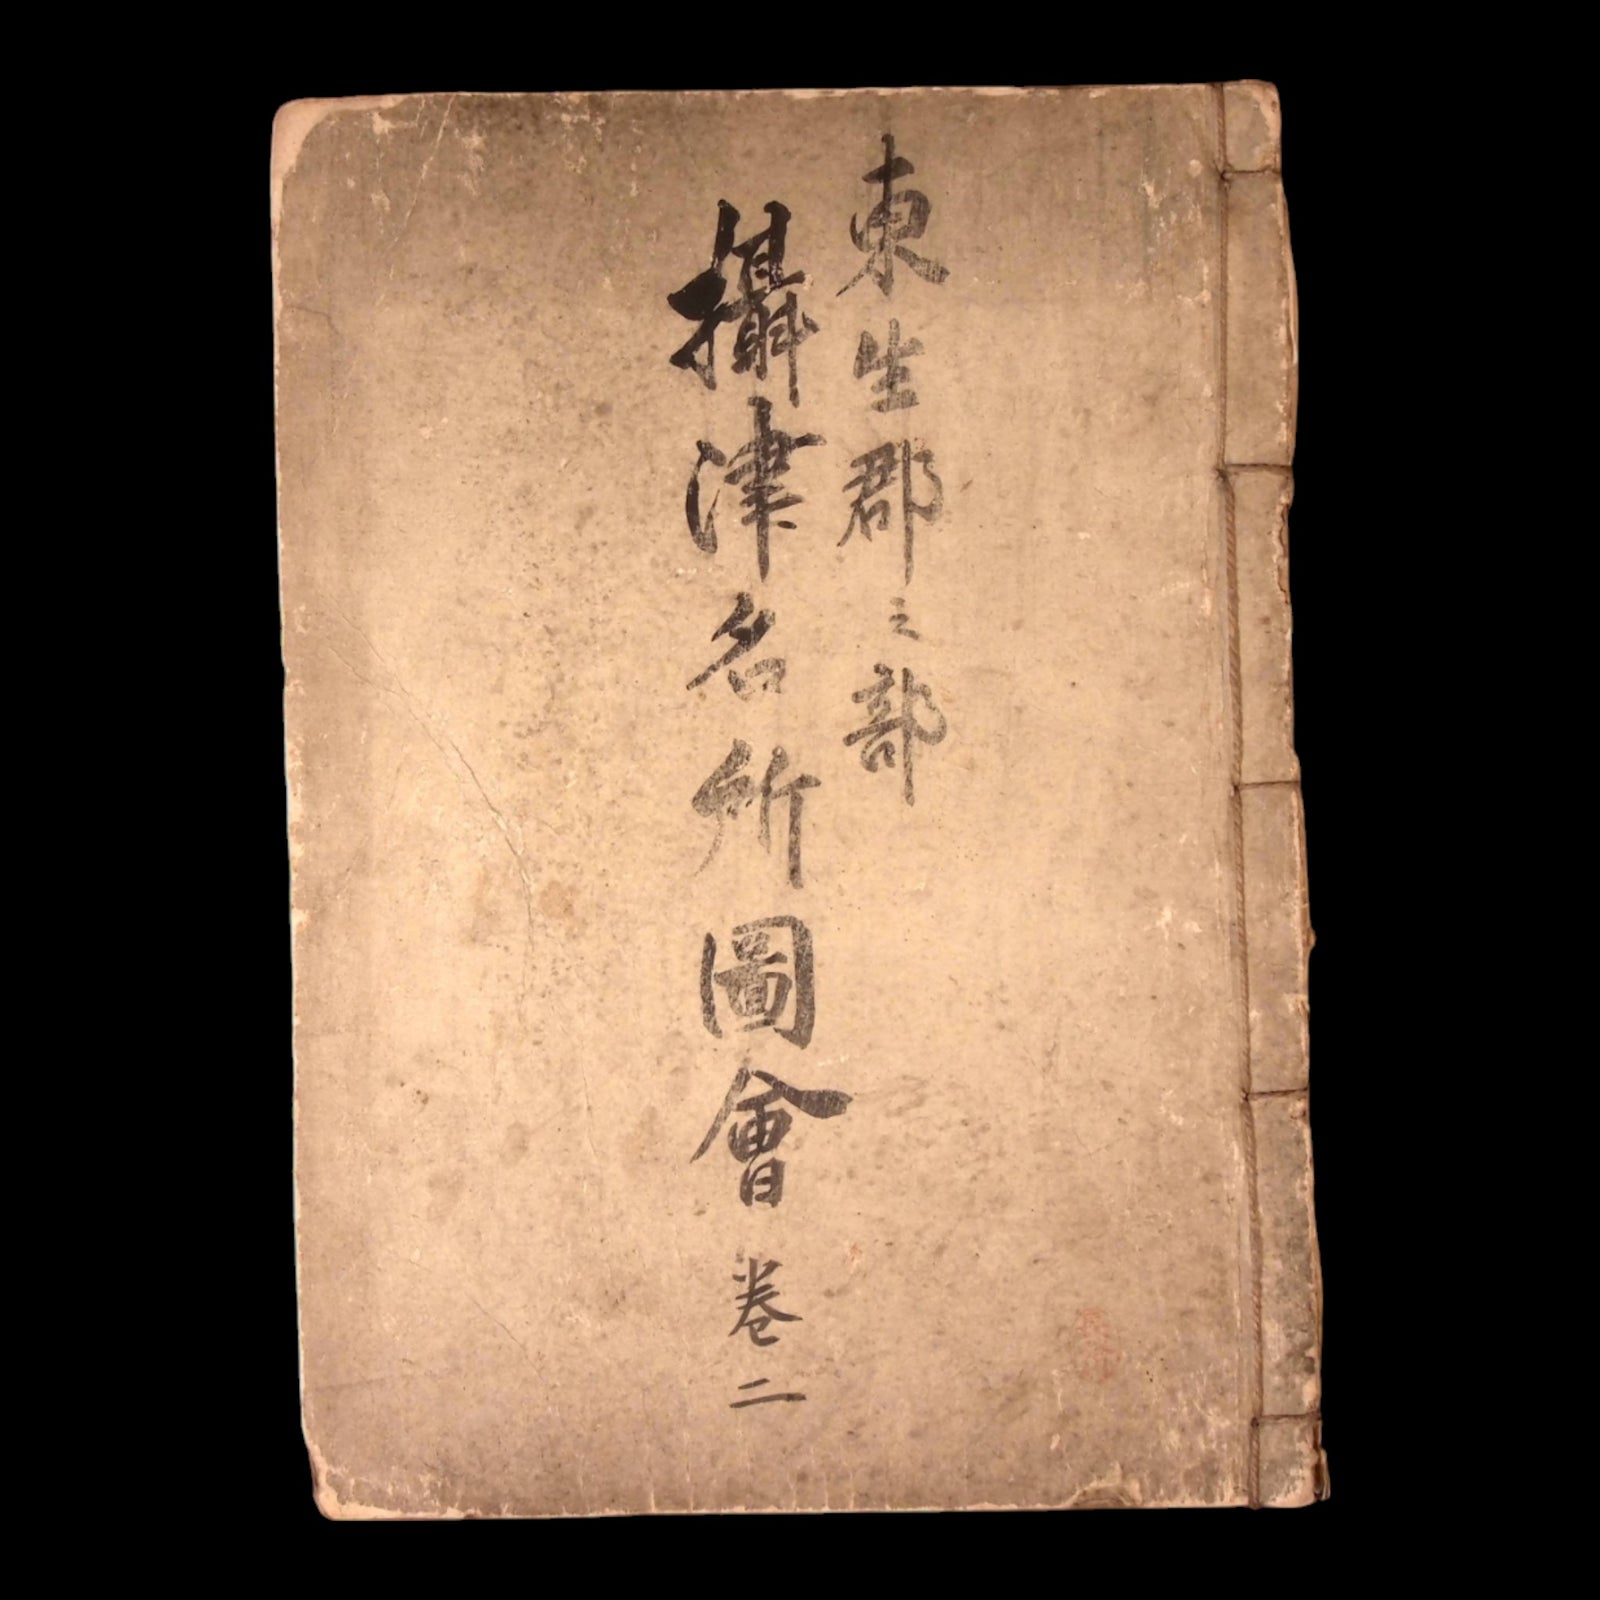 東生郡之部
攝津名所圖會 卷二